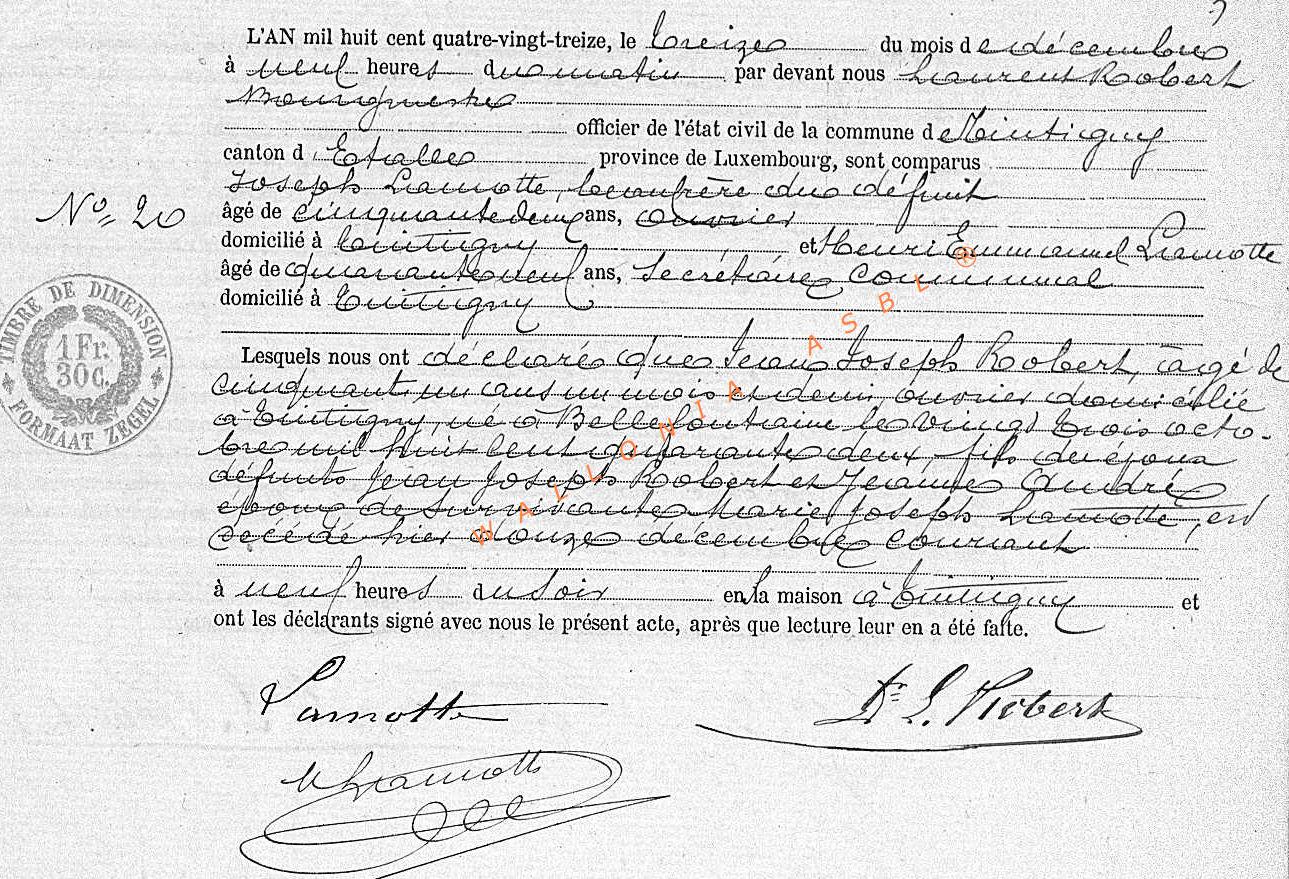 L'AN mil huit cent quatre-vingt-treize, le treize du mois de décembre
à neuf heures du matin par devant nous Laurent Robert
Bourgmestre
officier de l'état civil de la commune de Tintigny
canton d'Etalle province de Luxembourg, sont comparus
Joseph Lamotte, beaufrère du défunt
N° 20
âgé de cinquante deux ans, ouvrier
domicilié à Tintigny et Henri Emmanuel Lamotte
âgé de quarante neuf ans, secrétaire communal
domicilié à Tintigny
TIMBRE DE DIMENSION
1 Fr.
30 C.
FORMAAT ZEGEL
Lesquels nous ont déclaré que Jean Joseph Robert, âgé de
cinquant un ans un mois et demi, ouvrier domicilié
à Tintigny, né à Bellefontaine le vingt trois octo-
bre mil huit cent quarante deux, fils des époux
défunts Jean Joseph Robert et Jeanne André
époux de survivante Marie Joseph Lamotte, est
décédé hier douze décembre courant
à neuf heures du soir en la maison à Tintigny et
ont les déclarants signé avec nous le présent acte, après que lecture leur en a été faite.
Lamotte
Dr L. Robert
Lamotte
WALLONIA ASBL ®